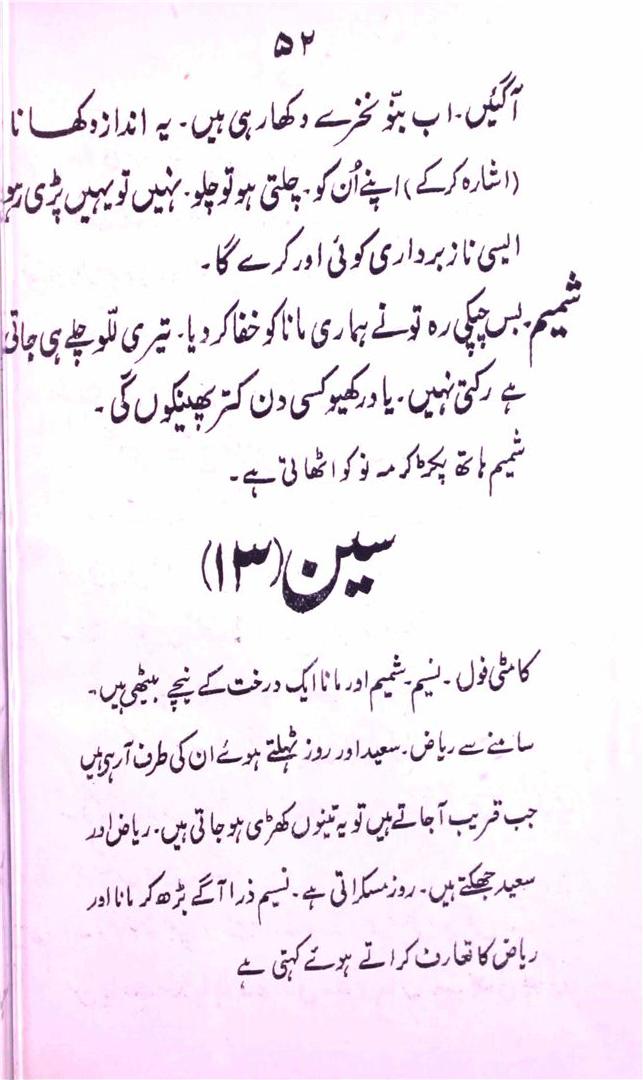 ۵۲
آگئیں۔ اب بنّو نخرے دکھا رہی ہیں۔ یہ انداز دکھانا
(اشارہ کرکے) اپنے اُن کو۔ چلتی ہو تو چلو۔ نہیں تو یہیں پڑی رہو
ایسی ناز برداری کوئی اور کرے گا۔
شمیم۔ بس چپکی رہ تو نے ہماری مانا کو خفا کردیا۔ تیری للّو چلے ہی جاتی
ہے رکتی نہیں۔ یاد رکھیو کسی دن کتر پھینکوں گی۔
شمیم ہاتھ پکڑ کر مہ نو کو اٹھاتی ہے۔
سین (۱۳)
کامٹی فول۔ نسیم۔ شمیم اور مانا ایک درخت کے نیچے بیٹھی ہیں۔
سامنے سے ریاض۔ سعید اور روز ٹہلتے ہوئے ان کی طرف آرہی ہیں
جب قریب آجاتے ہیں تو یہ تینوں کھڑی ہو جاتی ہیں۔ ریاض اور
سعید جھجکتے ہیں۔ روز مسکراتی ہے۔ نسیم ذرا آگے بڑھ کر مانا اور
ریاض کا تعارف کراتے ہوئے کہتی ہے